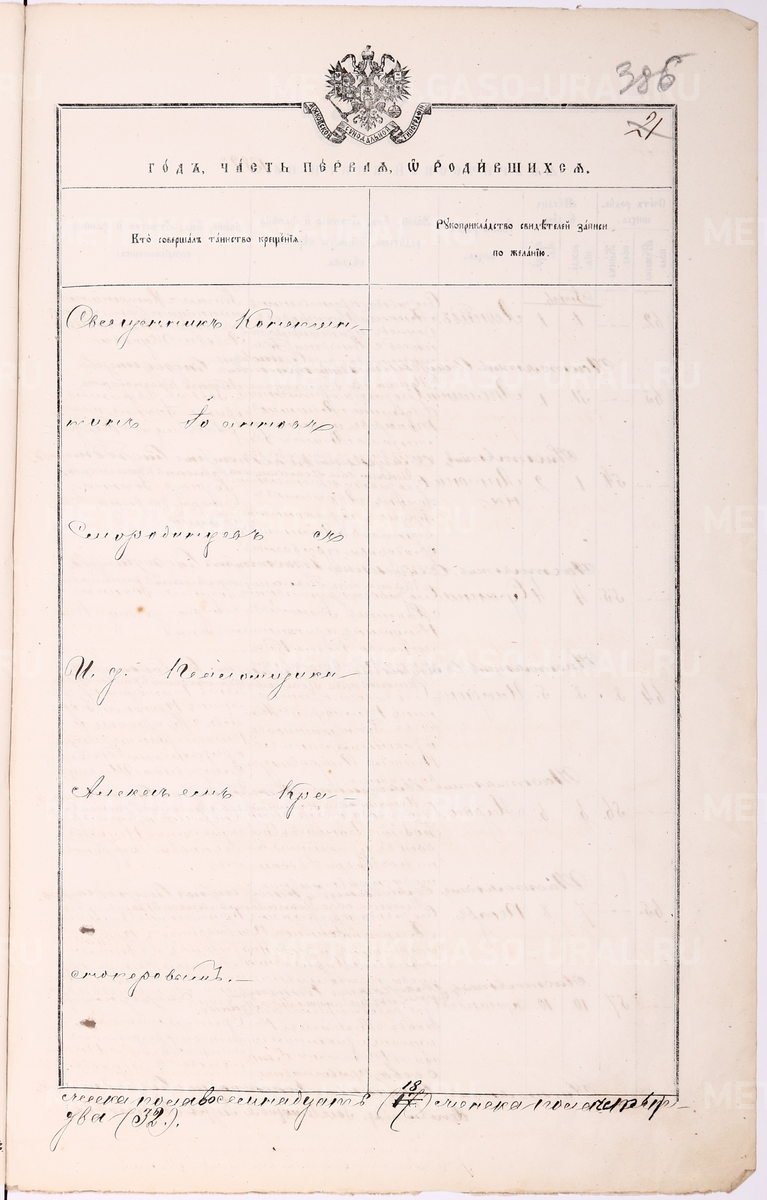 386
21
ГОДЪ, ЧАСТЬ ПЕРВАЯ, Ѡ РОДИВШИХСЯ.
Кто совершалъ таинство крещенія.
Рукоприкладство свидѣтелей записи
по желанію.
Священникъ Констан-
тинъ Іоанновъ
Смородинцевъ съ
И. д. Псаломщика
Алексѣемъ Кра-
сноперовымъ.-
мужеска пола восемнадцать (18
женска пола
два (32).